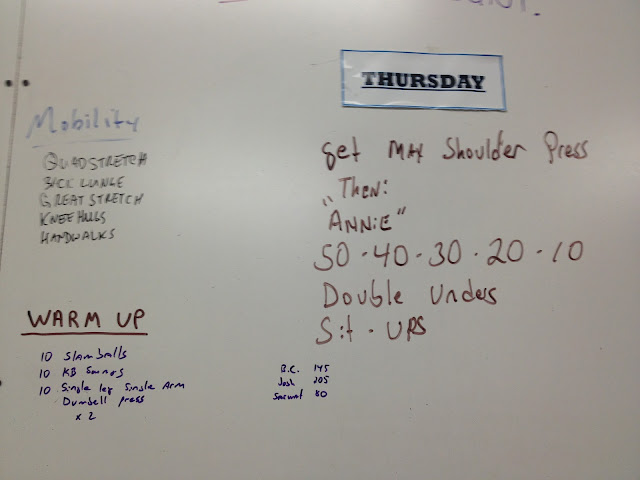 THURSDAY
Mobility
QUADSTRETCH
BACK LUNGE
GREAT STRETCH
KNEE HUGS
HANDWALKS
Get MAX Shoulder Press
"Then:
ANNiE"
50 - 40 - 30 - 20 - 10
Double Unders
Sit - UPS
WARM UP
10 Slamballs
10 KB Swings
10 Single leg Single Arm
Dumbell press
x 2
B.C. 145
Josh 205
80